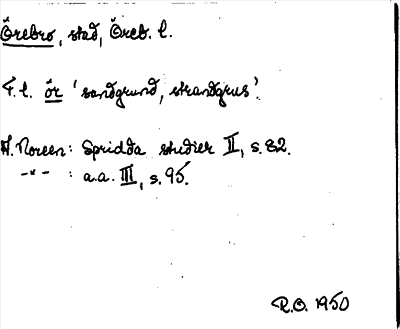 Örebro, stad, Öreb. l.
F.l. ör 'sandgrund, strandgrus'.
A. Noreen: Spridda studier II, s. 82.
-"- : a.a. III, s. 95.
R.O. 1950